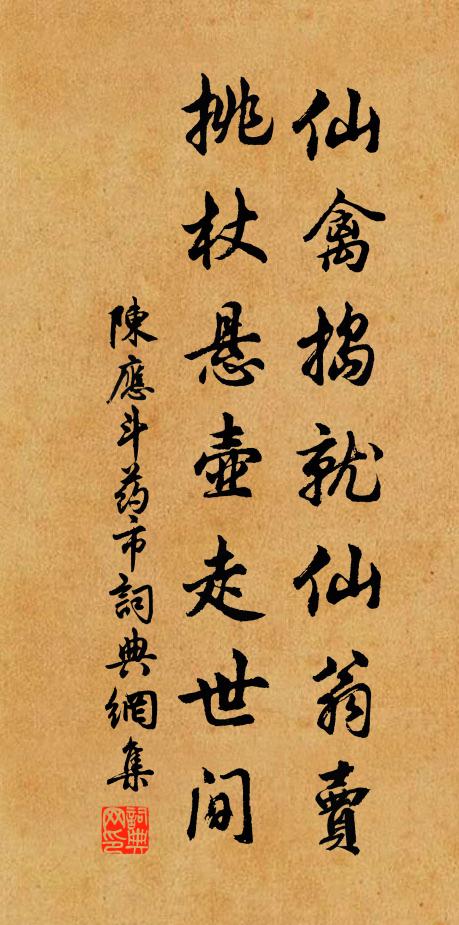 仙禽搗就仙翁賣
挑杖悬壺走世间
陳應斗药市詞典網集
詞典网印